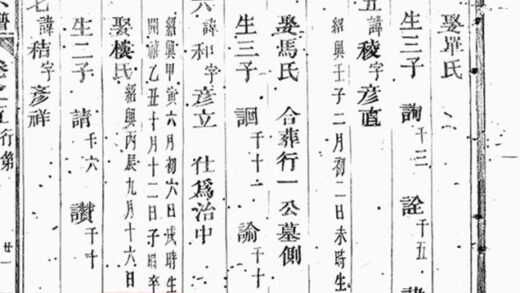 娶單氏
生三子 詢千三 詮千五
五諱稜字彥直
紹興壬子二月初二日未時生
娶馬氏 合葬行一公墓側
生三子 詷千十二 諭千十
六諱和字彥立 仕爲治中
紹興甲寅六月初六日戌時生
開禧乙丑十月十二日子時卒
娶樓氏 紹興丙辰九月十六日
生二子 請千六 讚千十
七諱秸字彥祥
譜 卷之五 行第 廿